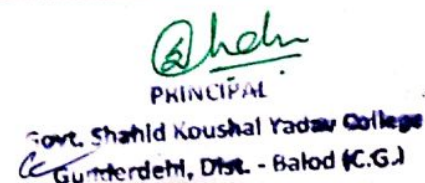 PRINCIPAL
Govt. Shahid Koushal Yadav College
Gunderdehi, Dist. - Balod (C.G.)